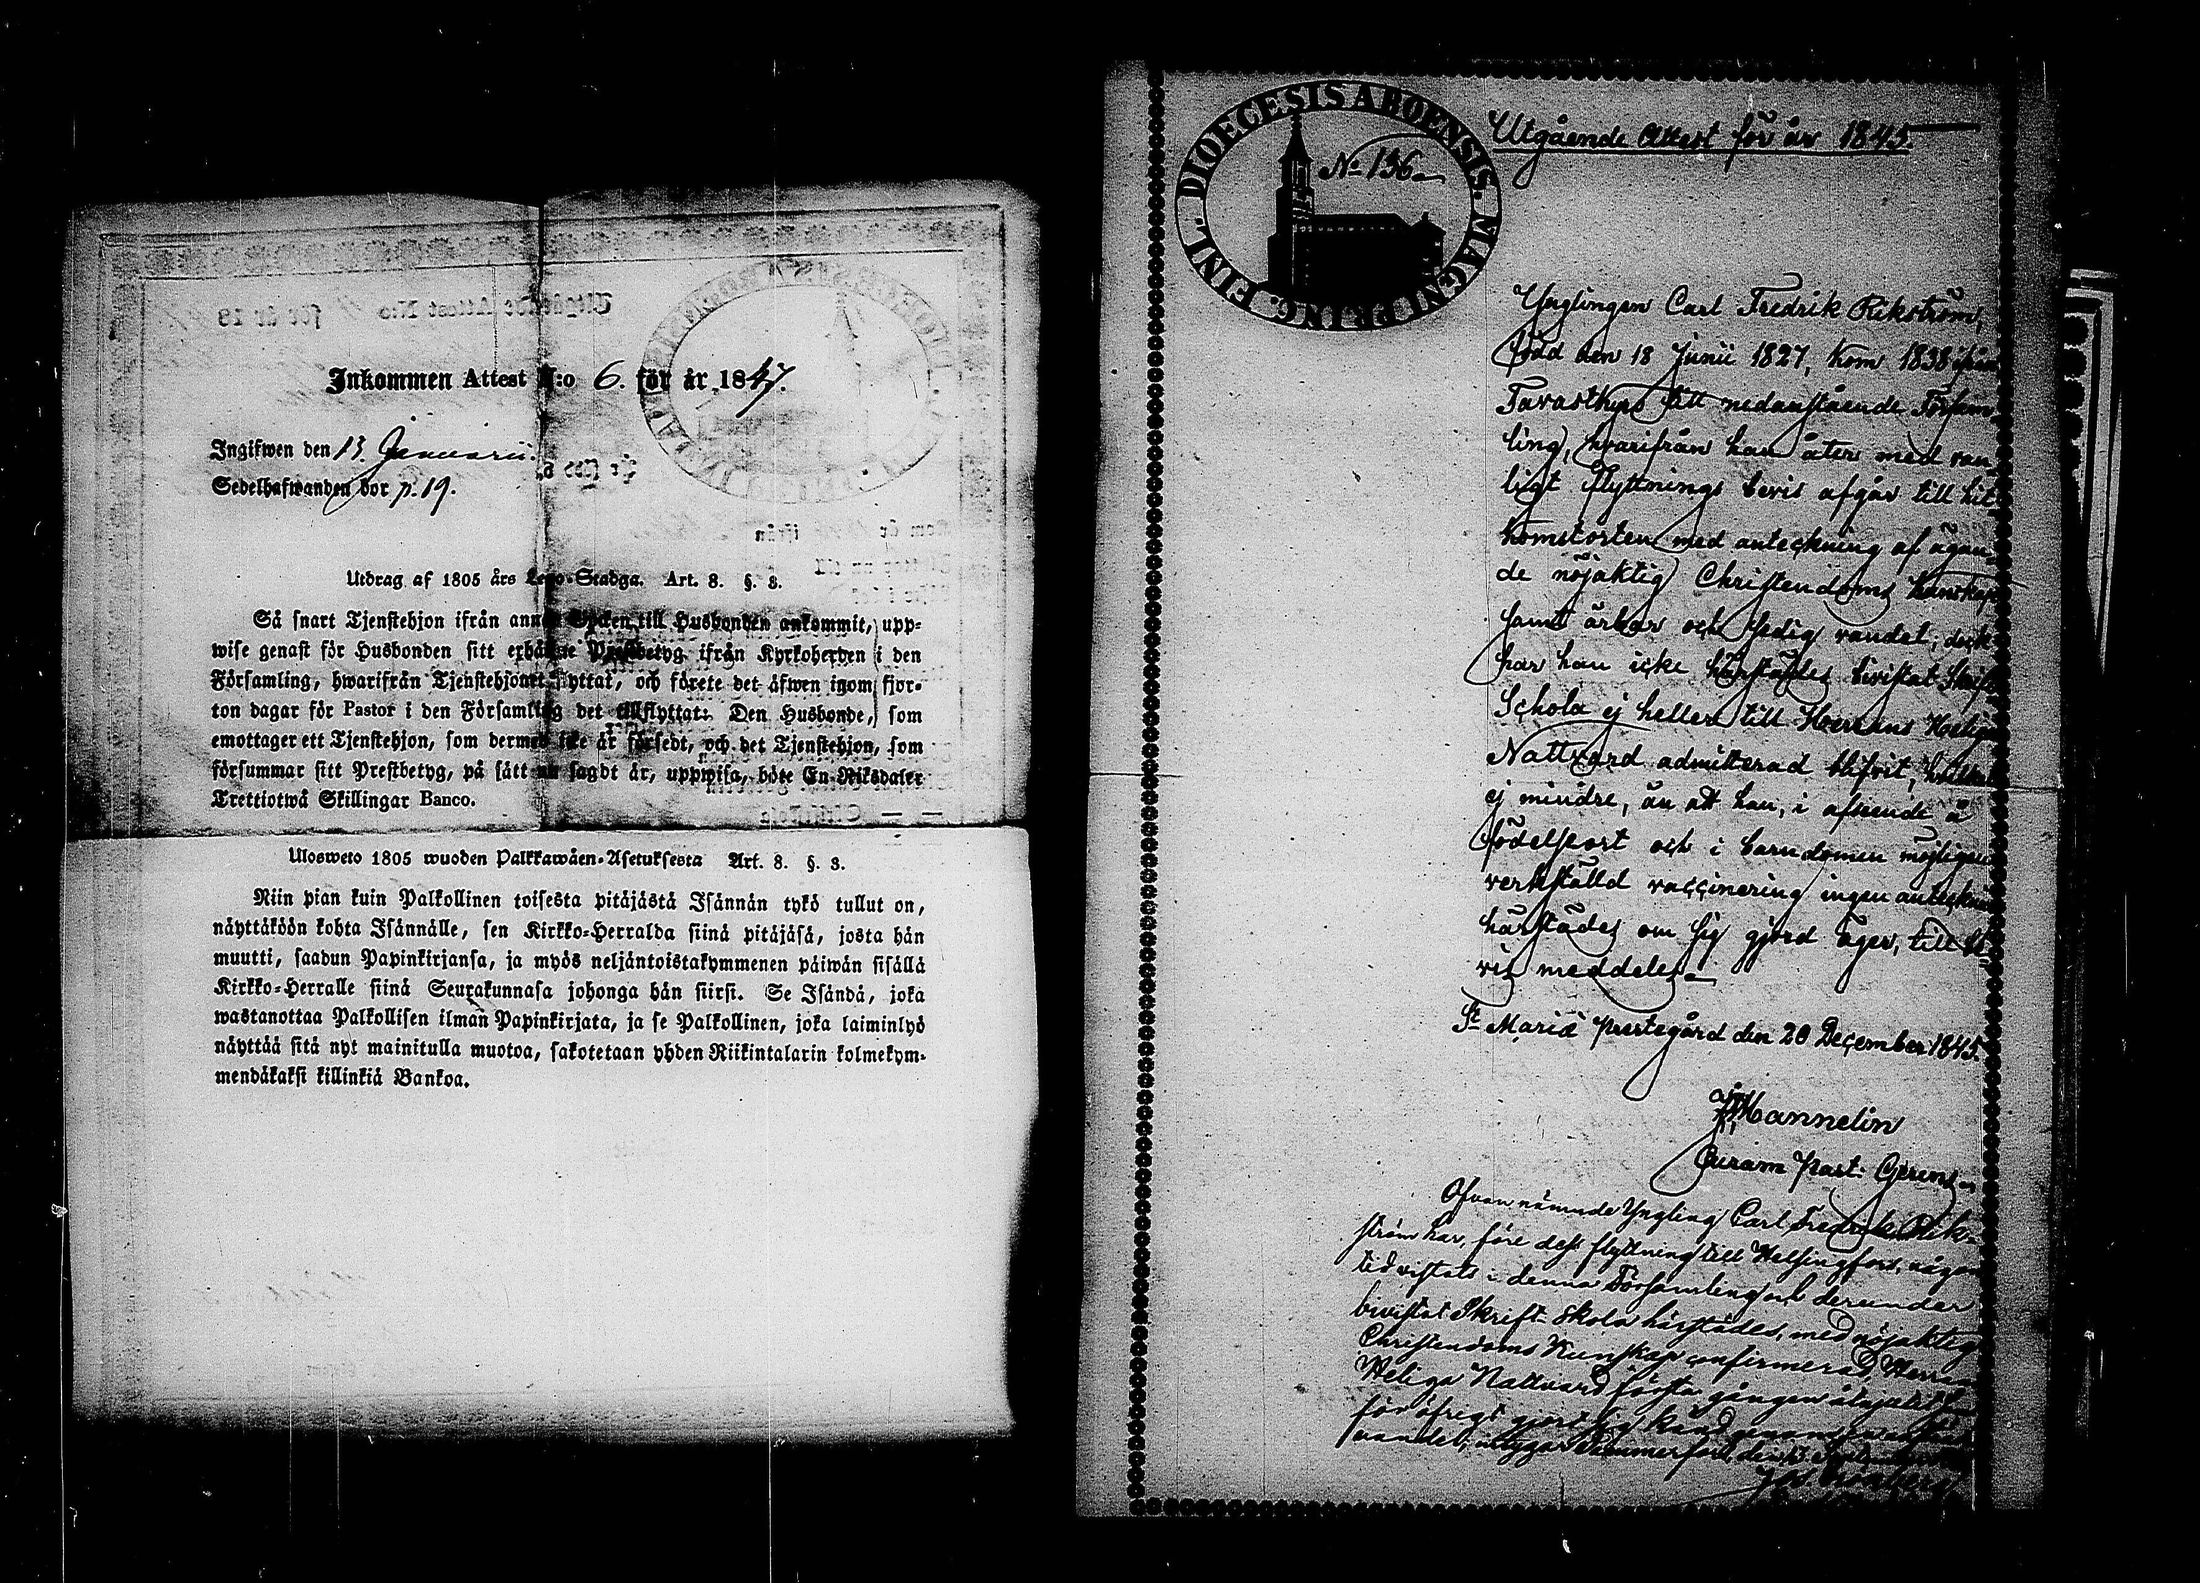 Inkommen Attest N:o 6. för år 1847.
Ingifwen den 13. Januarii.
Sedelhafwanden bor p. 19.
Utdrag af 1805 års Lego-Stadga. Art. 8. §. 3.
Så snart Tjenstehjon ifrån annan Socken till Husbonden ankommit, upp-
wise genast för Husbonden sitt erhållne Prestbetyg ifrån Kyrkoherden i den
Församling, hwarifrån Tjenstehjonet flyttat, och förete det äfwen inom fjor-
ton dagar för Pastor i den Församling det tillflyttat: Den Husbonde, som
emottager ett Tjenstehjon, som dermed icke är försedt, och det Tjenstehjon, som
försummar sitt Prestbetyg, på sätt nu sagdt är, uppwisa, böte En Riksdaler
Trettiotwå Skillingar Banco.
Ulosweto 1805 wuoden Palkkawäen-Asetuksesta Art. 8. §. 3.
Niin pian kuin Palkollinen toisesta pitäjästä Isännän tykö tullut on,
näyttäköön kohta Isännälle, sen Kirkko-Herralda siinä pitäjäsä, josta hän
muutti, saadun Papinkirjansa, ja myös neljäntoistakymmenen päiwän sisällä
Kirkko-Herralle siinä Seurakunnasa johonga hän siirsi. Se Isändä, joka
wastanottaa Palkollisen ilman Papinkirjata, ja se Palkollinen, joka laiminlyö
näyttää sitä nyt mainitulla muotoa, sakotetaan yhden Riikintalarin kolmekym-
mendäkaksi killinkiä Bankoa.
DIOECESIS ABOENSIS. MAGNI PRINC. FINL.
No 136
Utgående Attest för år 1845.
Ynglingen Carl Fredrik Rikström,
född den 18 Junii 1827, kom 1838 ifrån
Tavastkyro till nedanstående Försam-
ling, hvarifrån han åter med van-
ligt Flyttnings bevis afgår till hit
komstorten med anteckning af ägan-
de nöjaktig Christendoms kunskap
samt ärbar och sedig vandel; dock
har han icke härstädes bivistat Skrift
Schola ej heller till Herrans Heliga
Nattvard admitterad blifvit, hvilket
ej mindre, än att han, i afseende å
födelseort och i barndomen möjligen
verkställd vaccinering ingen anteckning
härstädes om sig gjord äger, till be-
vis meddeles
St Mariæ prestegård den 20 December 1845.
Hannelin
Curam Past: Gerens
Ofvannämnde Yngling Carl Fredrik Rik-
ström har, före dess flyttning till Helsingfors, någon
tid vistats i denna Församling och derunder
bivistat Skrift-Skola härstädes, med nöjaktig
Christendoms Kunskap confirmerad, Herrans
Heliga Nattvard första gången åtnjutit samt
för öfrigt gjort sig känd genom en anständig
vandel; intygar Tammerfors den